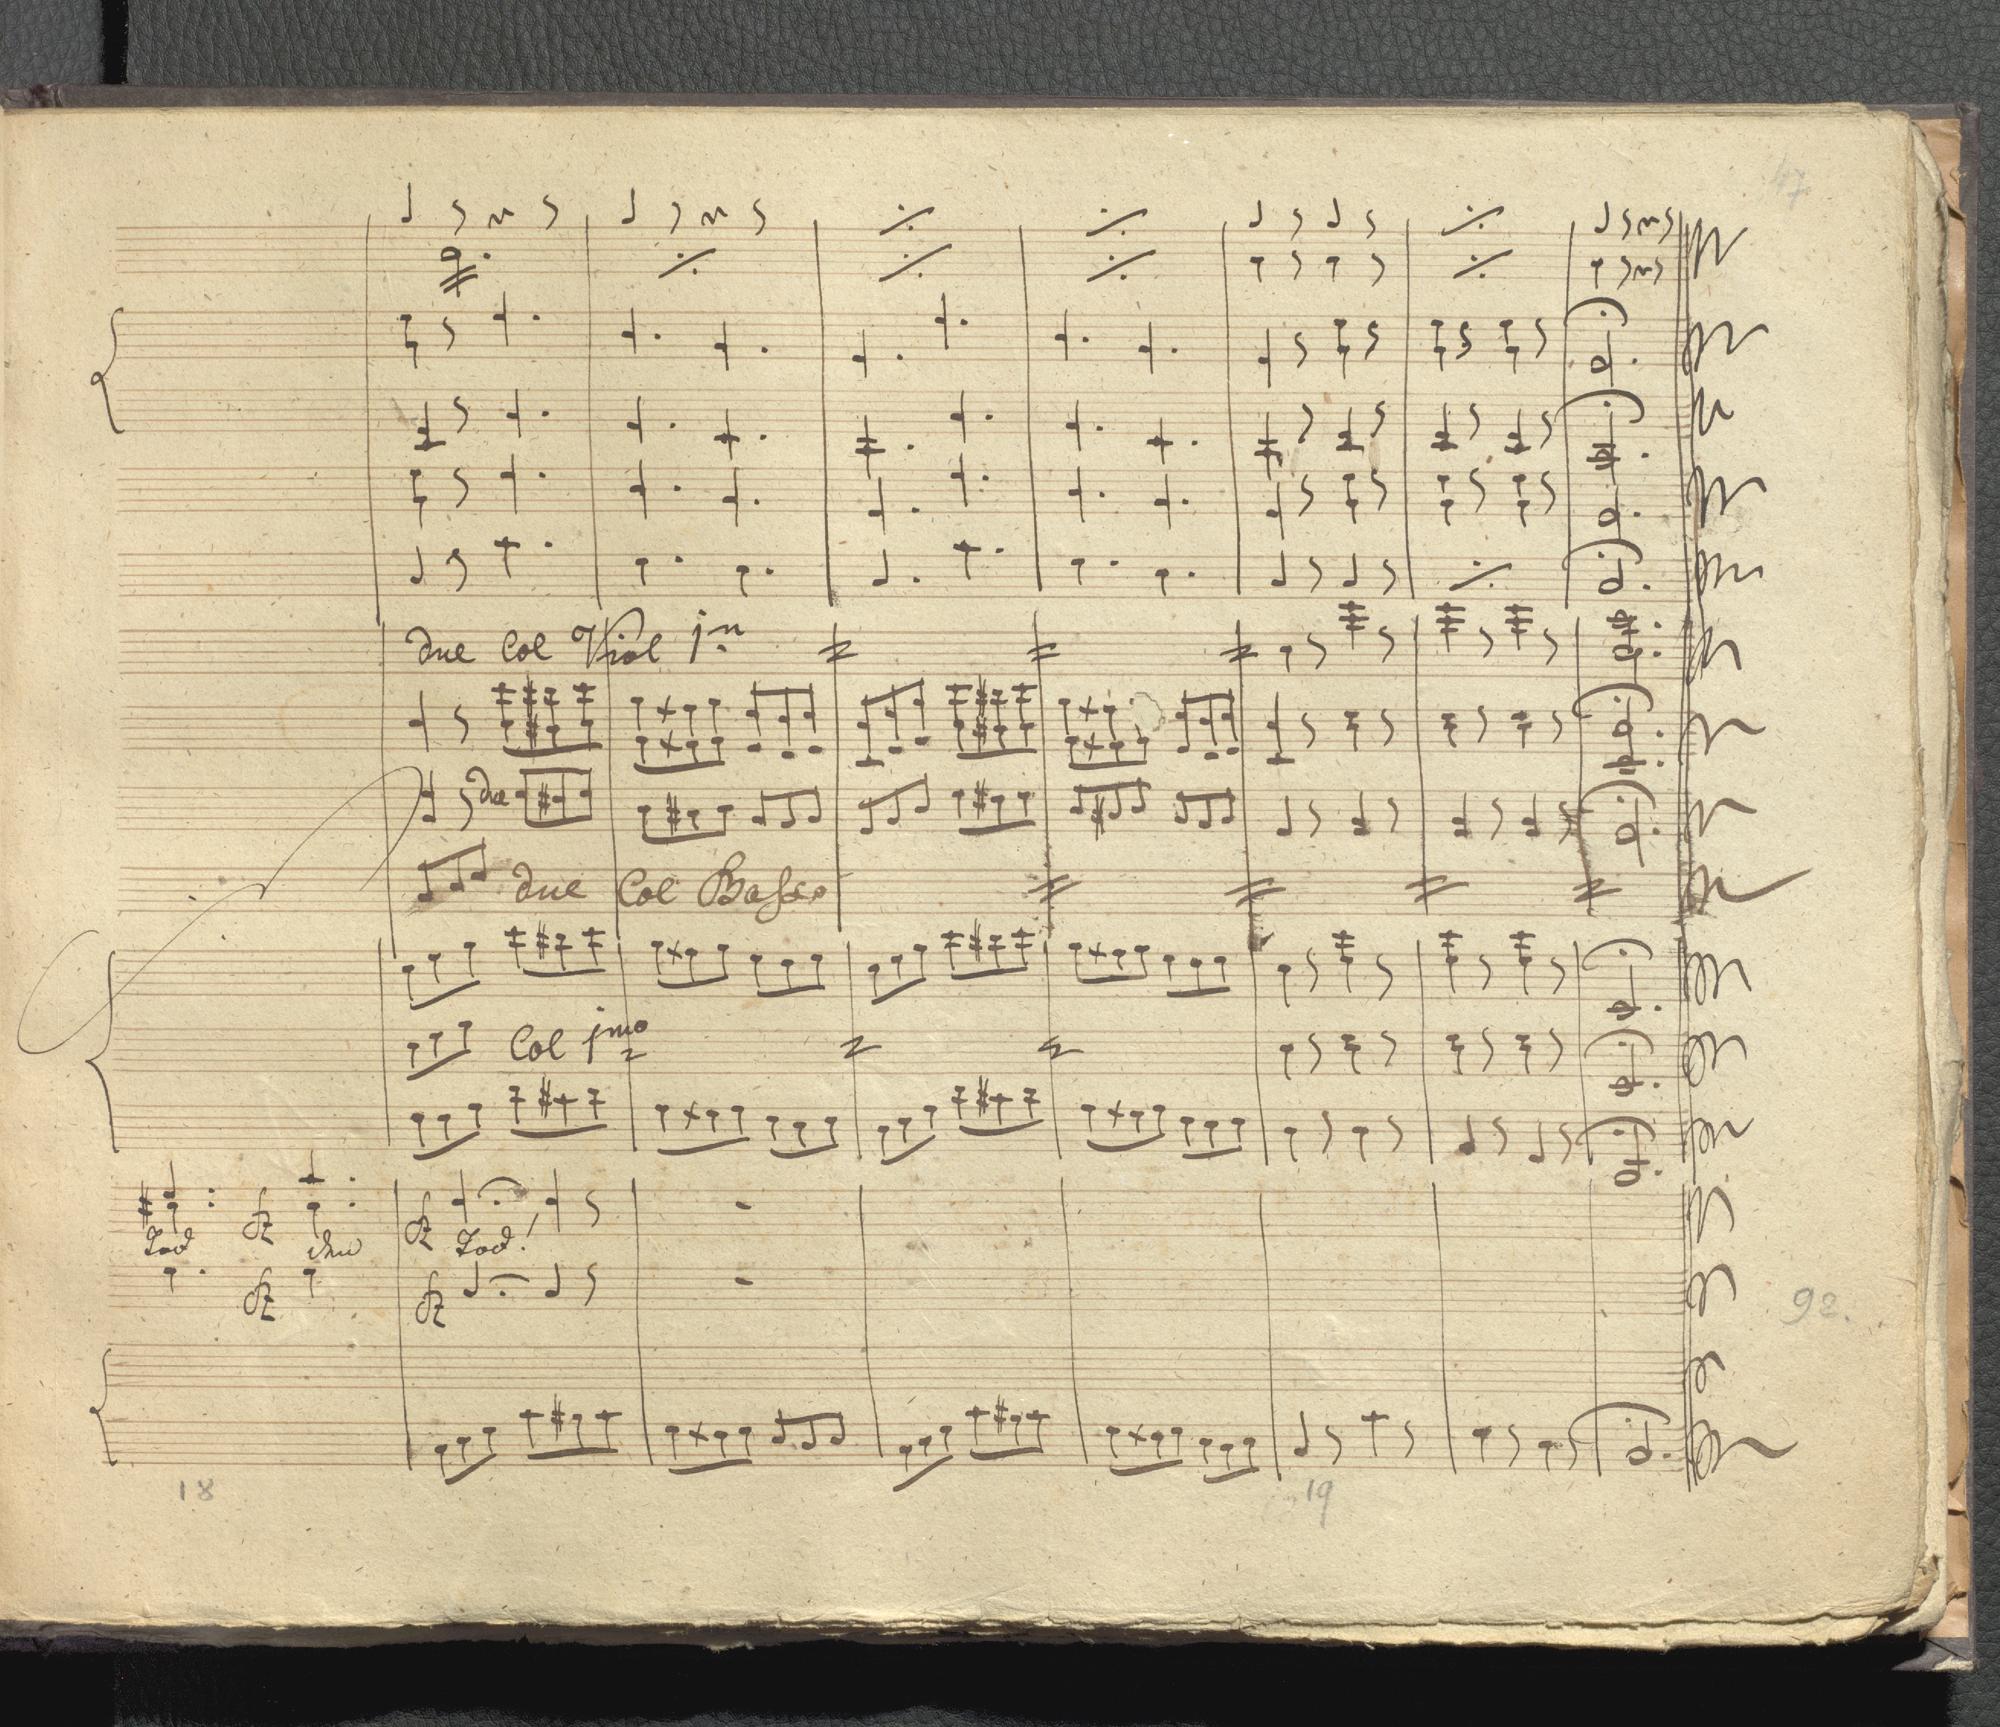 47
due Col Viol 1mo
due
due Col Basso
Col 1mo
Tod den Tod!
92.
18 19